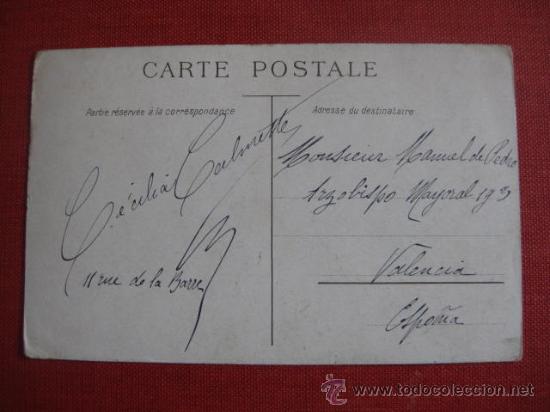 CARTE POSTALE
Partie réservée à la correspondance
Adresse du destinataire
Cécilia Calmette
11 rue de la Barre
Monsieur Manuel de Pedro
Arzobispo Mayoral 19 3
Valencia
España
todocoleccion.net